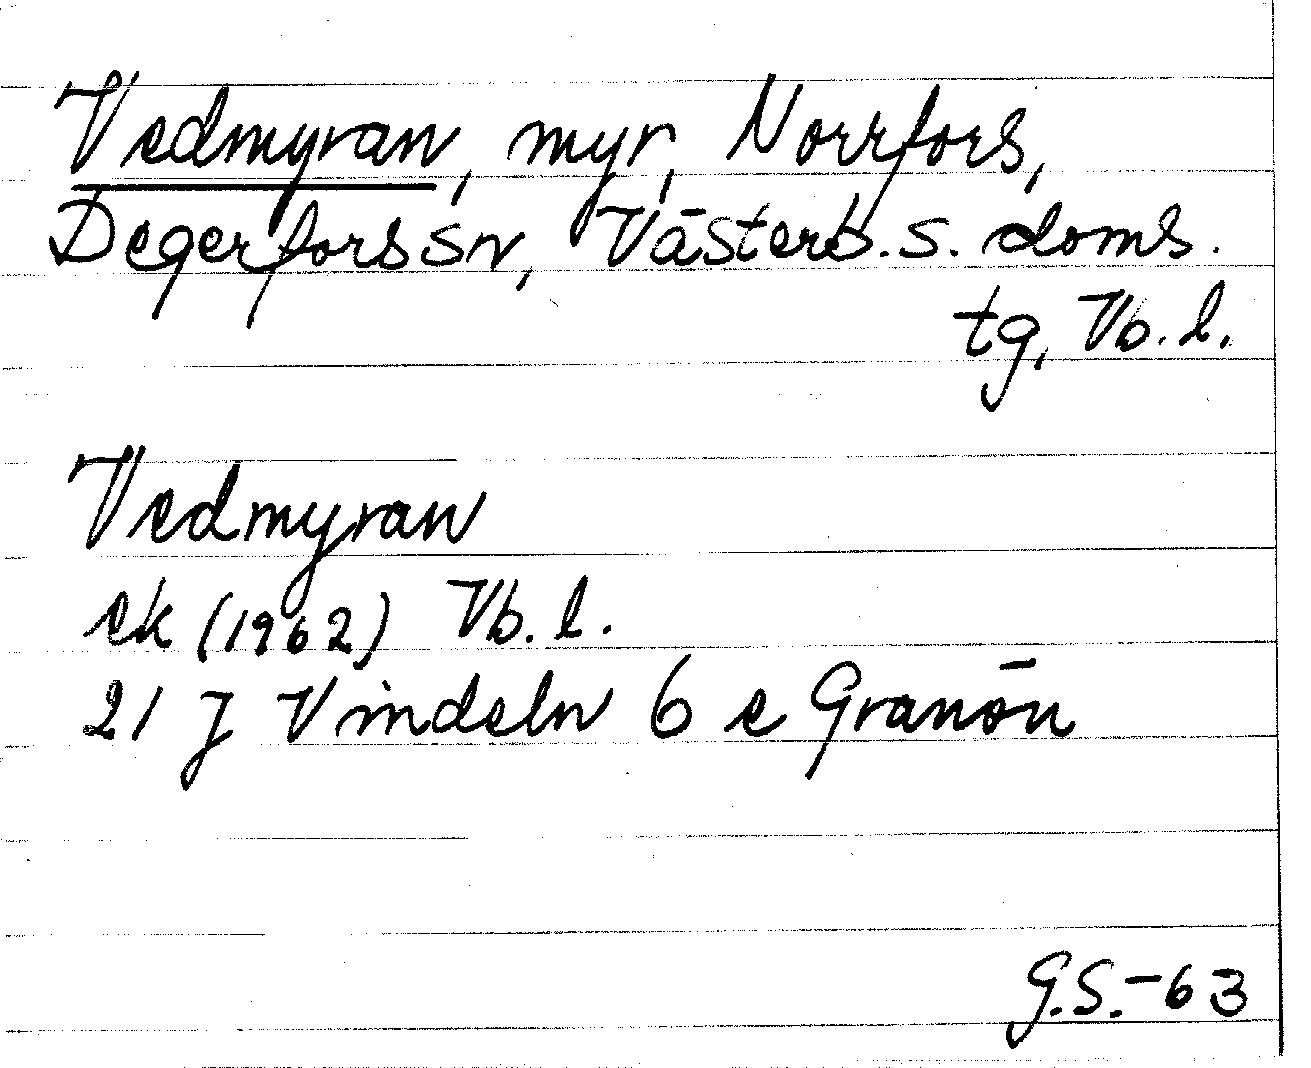 Vedmyran, myr, Norrfors,
Degerfors sn, Västerb. s. doms.
tg, Vb. l.
Vedmyran
ek (1962) Vb. l.
21 J Vindeln 6 e Granön
G.S.-63